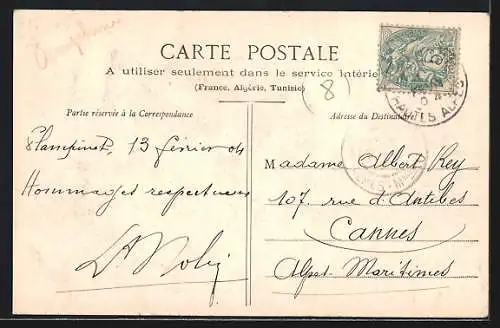 CARTE POSTALE
A utiliser seulement dans le service intérie
(France, Algérie, Tunisie)
(8)
Partie réservée à la Correspondance
Adresse du Destinataire
HAUTES ALPES
Plampinet, 13 février 04
Hommages respectueux
Madame Albert Rey
107 rue d'Antibes
Cannes
Alpes-Maritimes